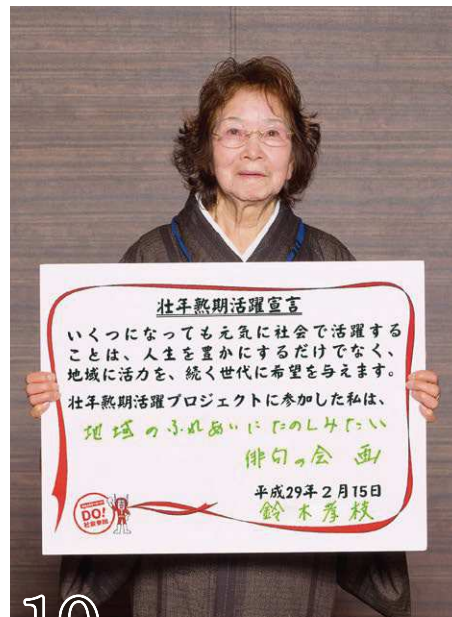 壮年熟期活躍宣言
いくつになっても元気に社会で活躍する
ことは、人生を豊かにするだけでなく、
地域に活力を、続く世代に希望を与えます。
壮年熟期活躍プロジェクトに参加した私は、
地域のふれあいにたのしみたい
俳句の会 画
平成29年2月15日
鈴木孝枝
DO!
社会参加
10